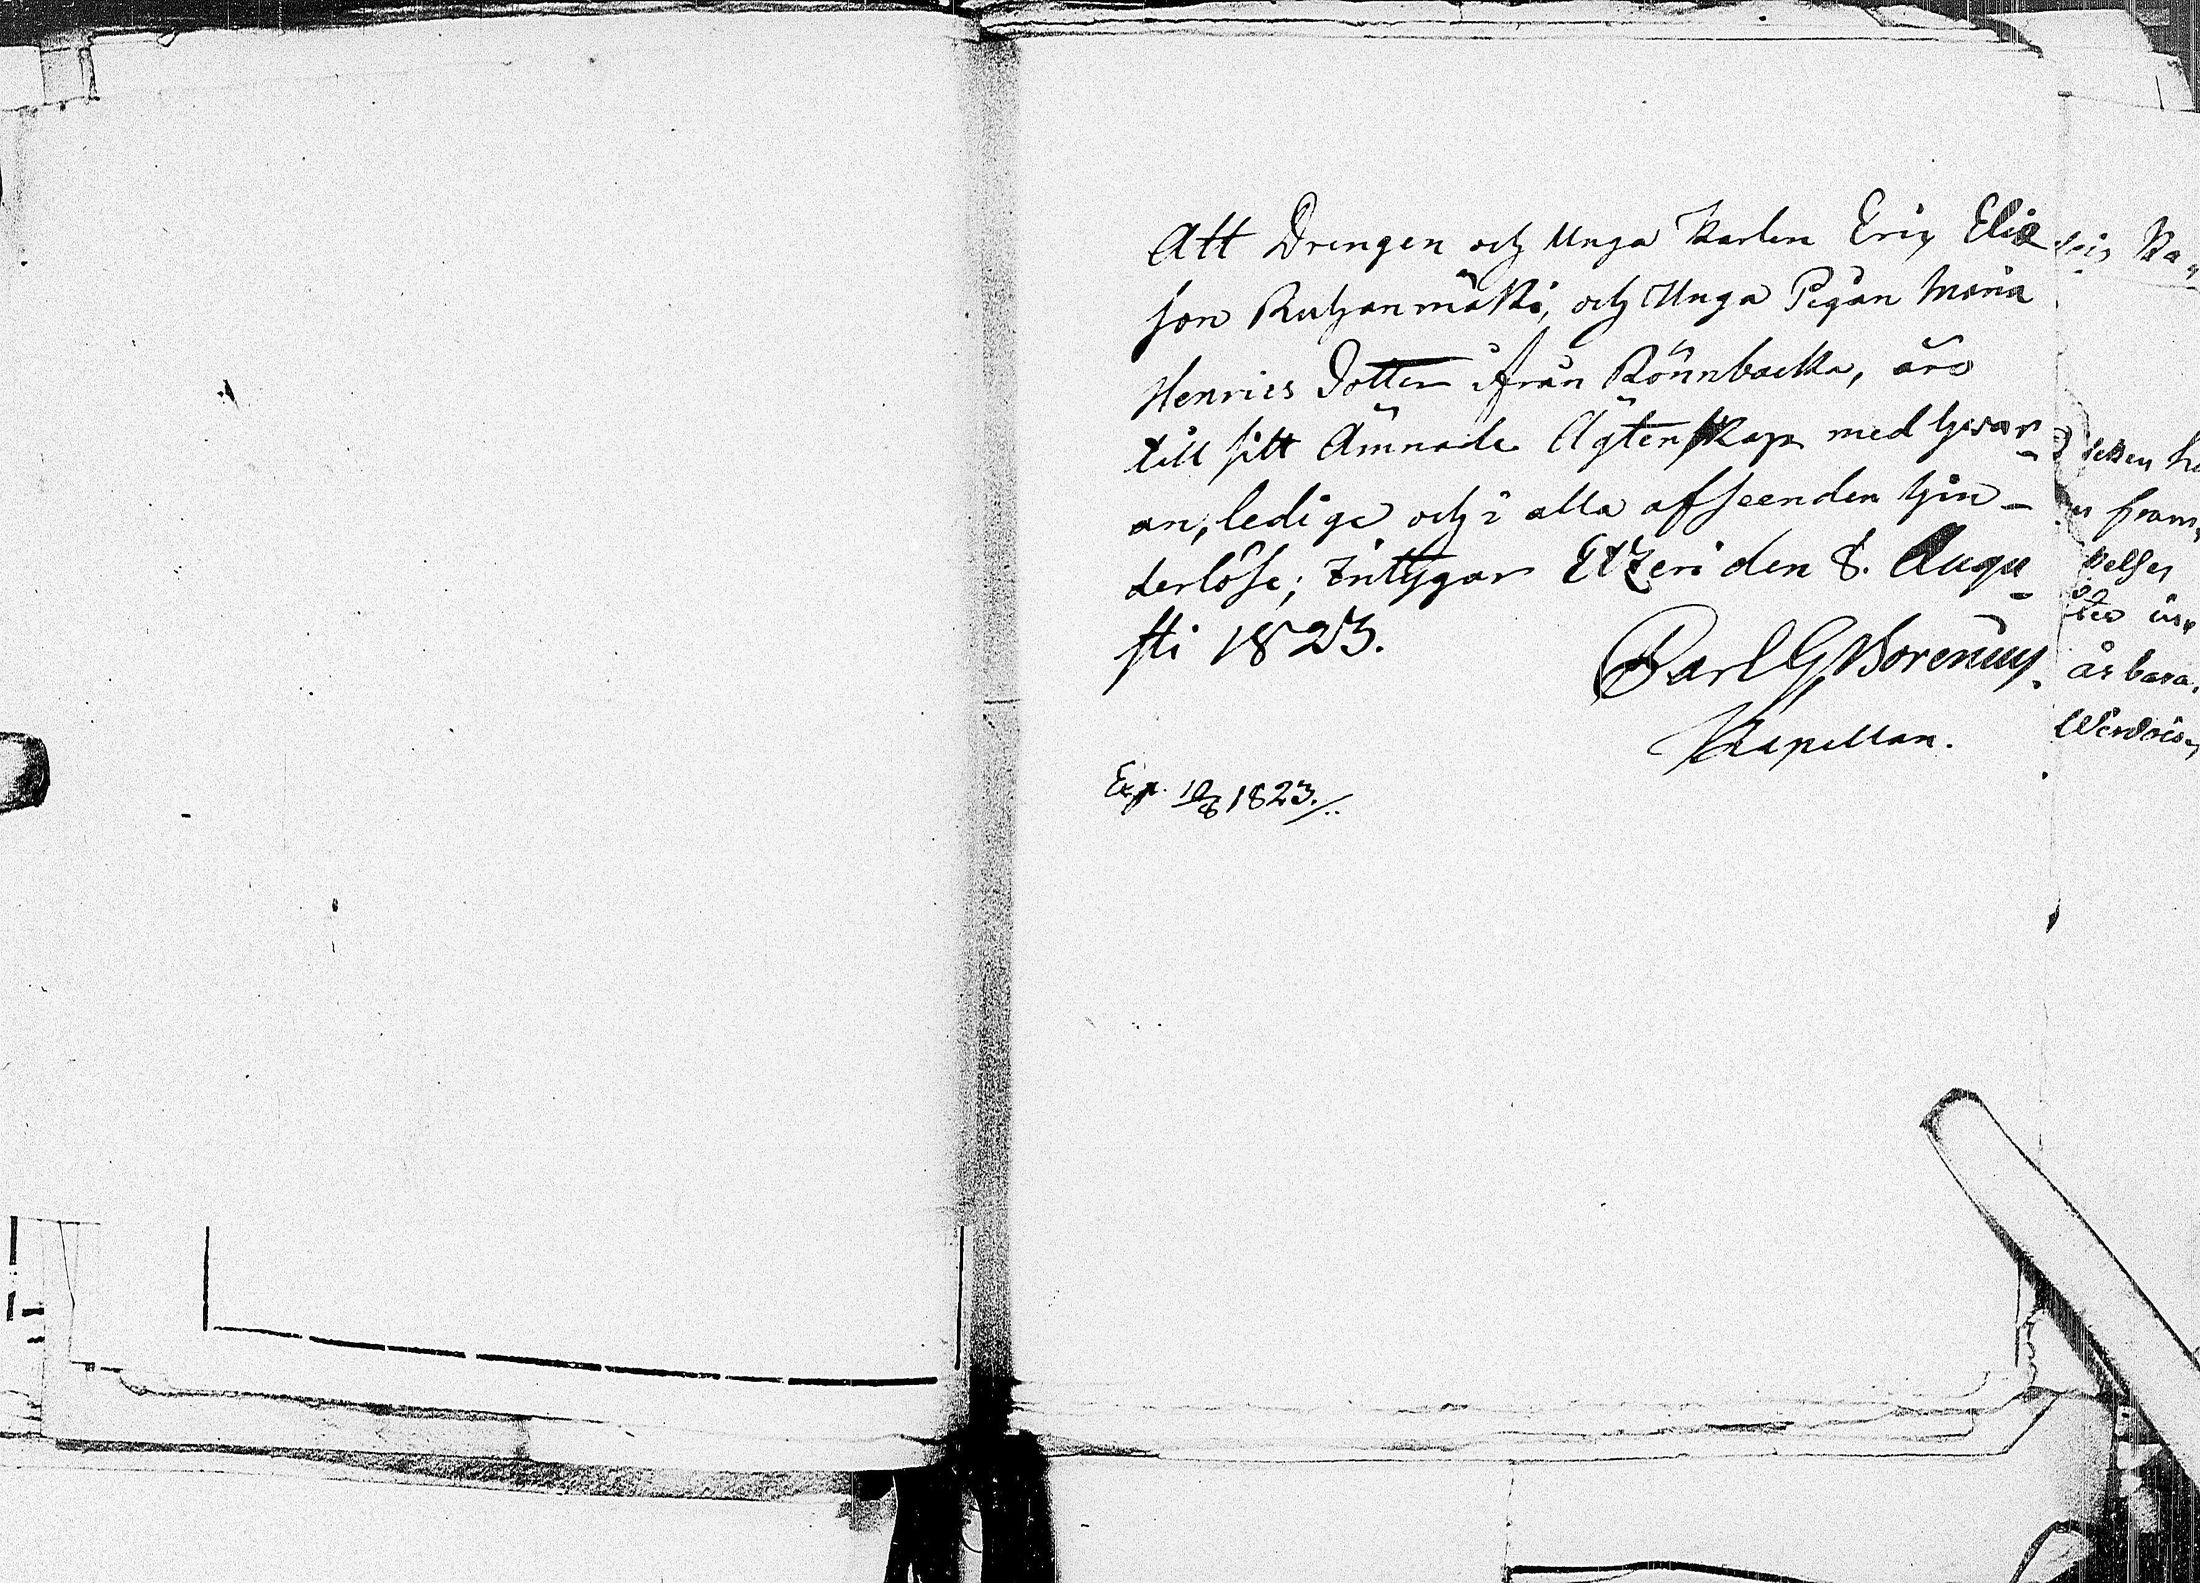 Att Drengen och Unga Karlen Eric Elia
son Ruhanmäki, och Unga Pigan Maria
Henrics Dotter ifrån Rönnbacka, äro
till sitt Ämnade Ägtenskap med hvar-
an, ledige och i alla afseenden hin-
derlöse; Intygar Etzeri den 8. Augu-
sti 1823.
Carl G Borenius.
Kapellan.
Exp. 10/8 1823./..
fram,
kelser
år bara,